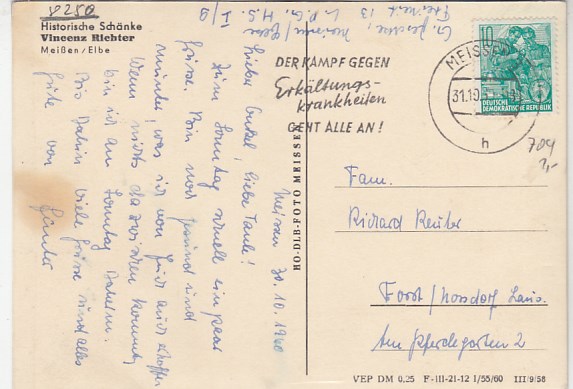 8250
Historische Schänke
Vincenz Richter
Meißen/Elbe
Meissen 30.10.1960
Lieber Onkel, liebe Tante!
Zum Sonntag schnell ein paar
Grüsse. Bin noch gesund und
munter, was ich von Euch auch hoffe.
Wenn nichts dazwischen kommt,
bin ich am Sonntag daheim.
Bis dahin viele Grüsse und alles
Gute von
Günter
HO-DLB-FOTO MEISSEN
G.
Freiheit 13
I/9
DER KAMPF GEGEN
Erkältungs-
krankheiten
GEHT ALLE AN!
MEISSEN
31.10
h
10
DEUTSCHE
DEMOKRATISCHE REPUBLIK
709
2,-
Fam.
Richard Reuter
Forst/Nossdorf Laus.
Am Pferdegarten 2
VEP DM 0,25 F-III-21-12 I/55/60 III/9/58